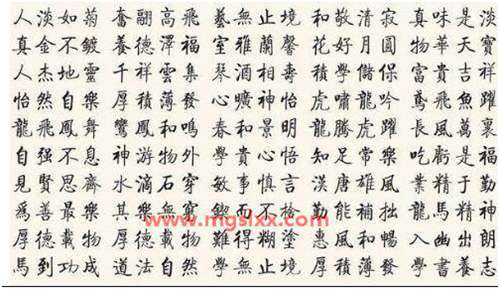 人淡如菊 奮翮高飛 藝無止境 和敬清寂 真味是淡
真金不鍍 養德澤福 室雅蘭馨 花好月圓 物華天寶
人杰地靈 千祥雲集 琴酒相壽 積學儲保 富貴吉祥
怡然自樂 厚積薄發 心曠神怡 虎嘯龍吟 鳶飛魚躍
龍飛鳳舞 鸞鳳和鳴 春和景明 龍騰虎躍 長風萬裏
自强不息 神游物外 學貴心悟 知足常樂 吃虧是福
見賢思齊 水滴石穿 敏事慎言 漢唐雄風 業精于勤
爲善最樂 其樂無窮 鍥而不捨 勤能補拙 龍馬精神
www.mgslxx.com
厚德載物 難得糊塗 惠風和暢
馬到功成 道法自然 學無止境 厚積薄發 學書養志